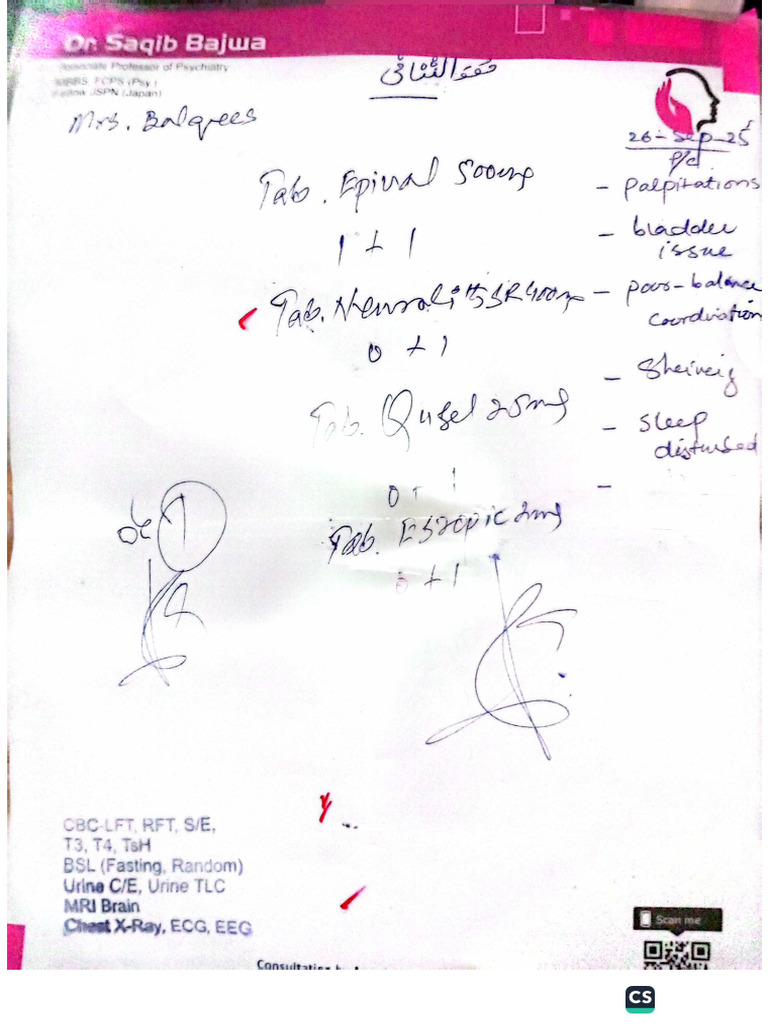 Dr. Saqib Bajwa
Associate Professor of Psychiatry
MBBS, FCPS (Psy)
Fellow JSPN (Japan)
Mrs. Balqees
26-Sep-25
P/c
Tab. Epival 500mg
1 + 1
Tab. Neurolith SR 400mg
0 + 1
Tab. Qusel 25mg
0 + 1
Tab. Eszopic 2mg
0 + 1
- palpitations
- bladder
issue
- poor-balance
coordination
-
- sleep
disturbed
-
CBC-LFT, RFT, S/E,
T3, T4, TsH
BSL (Fasting, Random)
Urine C/E, Urine TLC
MRI Brain
Chest X-Ray, ECG, EEG
Scan me
CS